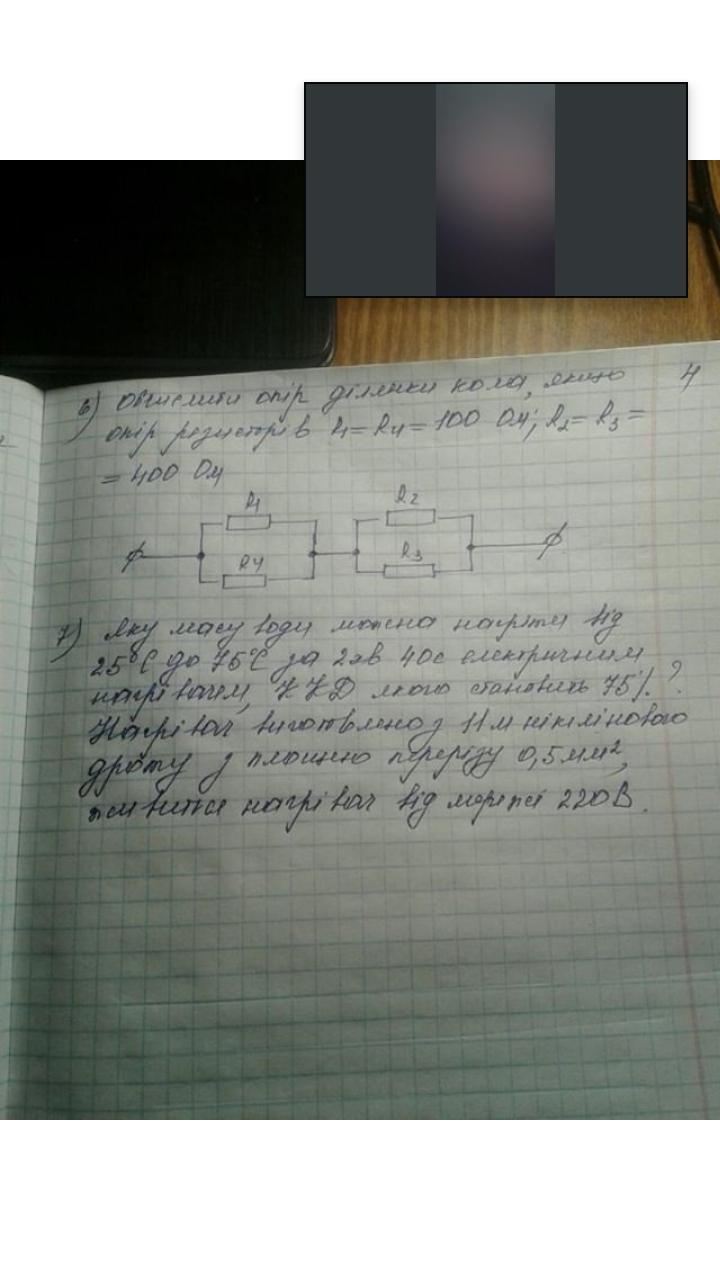 4
6) Обчислити опір ділянки кола, якщо
опір резисторів R1 = R4 = 100 Ом; R2 = R3 =
= 400 Ом
R1 R2
R4 R3
7) Яку масу води можна нагріти від
25°C до 75°C за 2хв 40с електричним
нагрівачем, ККД якого становить 75%?
Нагрівач виготовлено з 11м нікелінового
дроту з площею перерізу 0,5 мм²,
живиться нагрівач від мережі 220В.